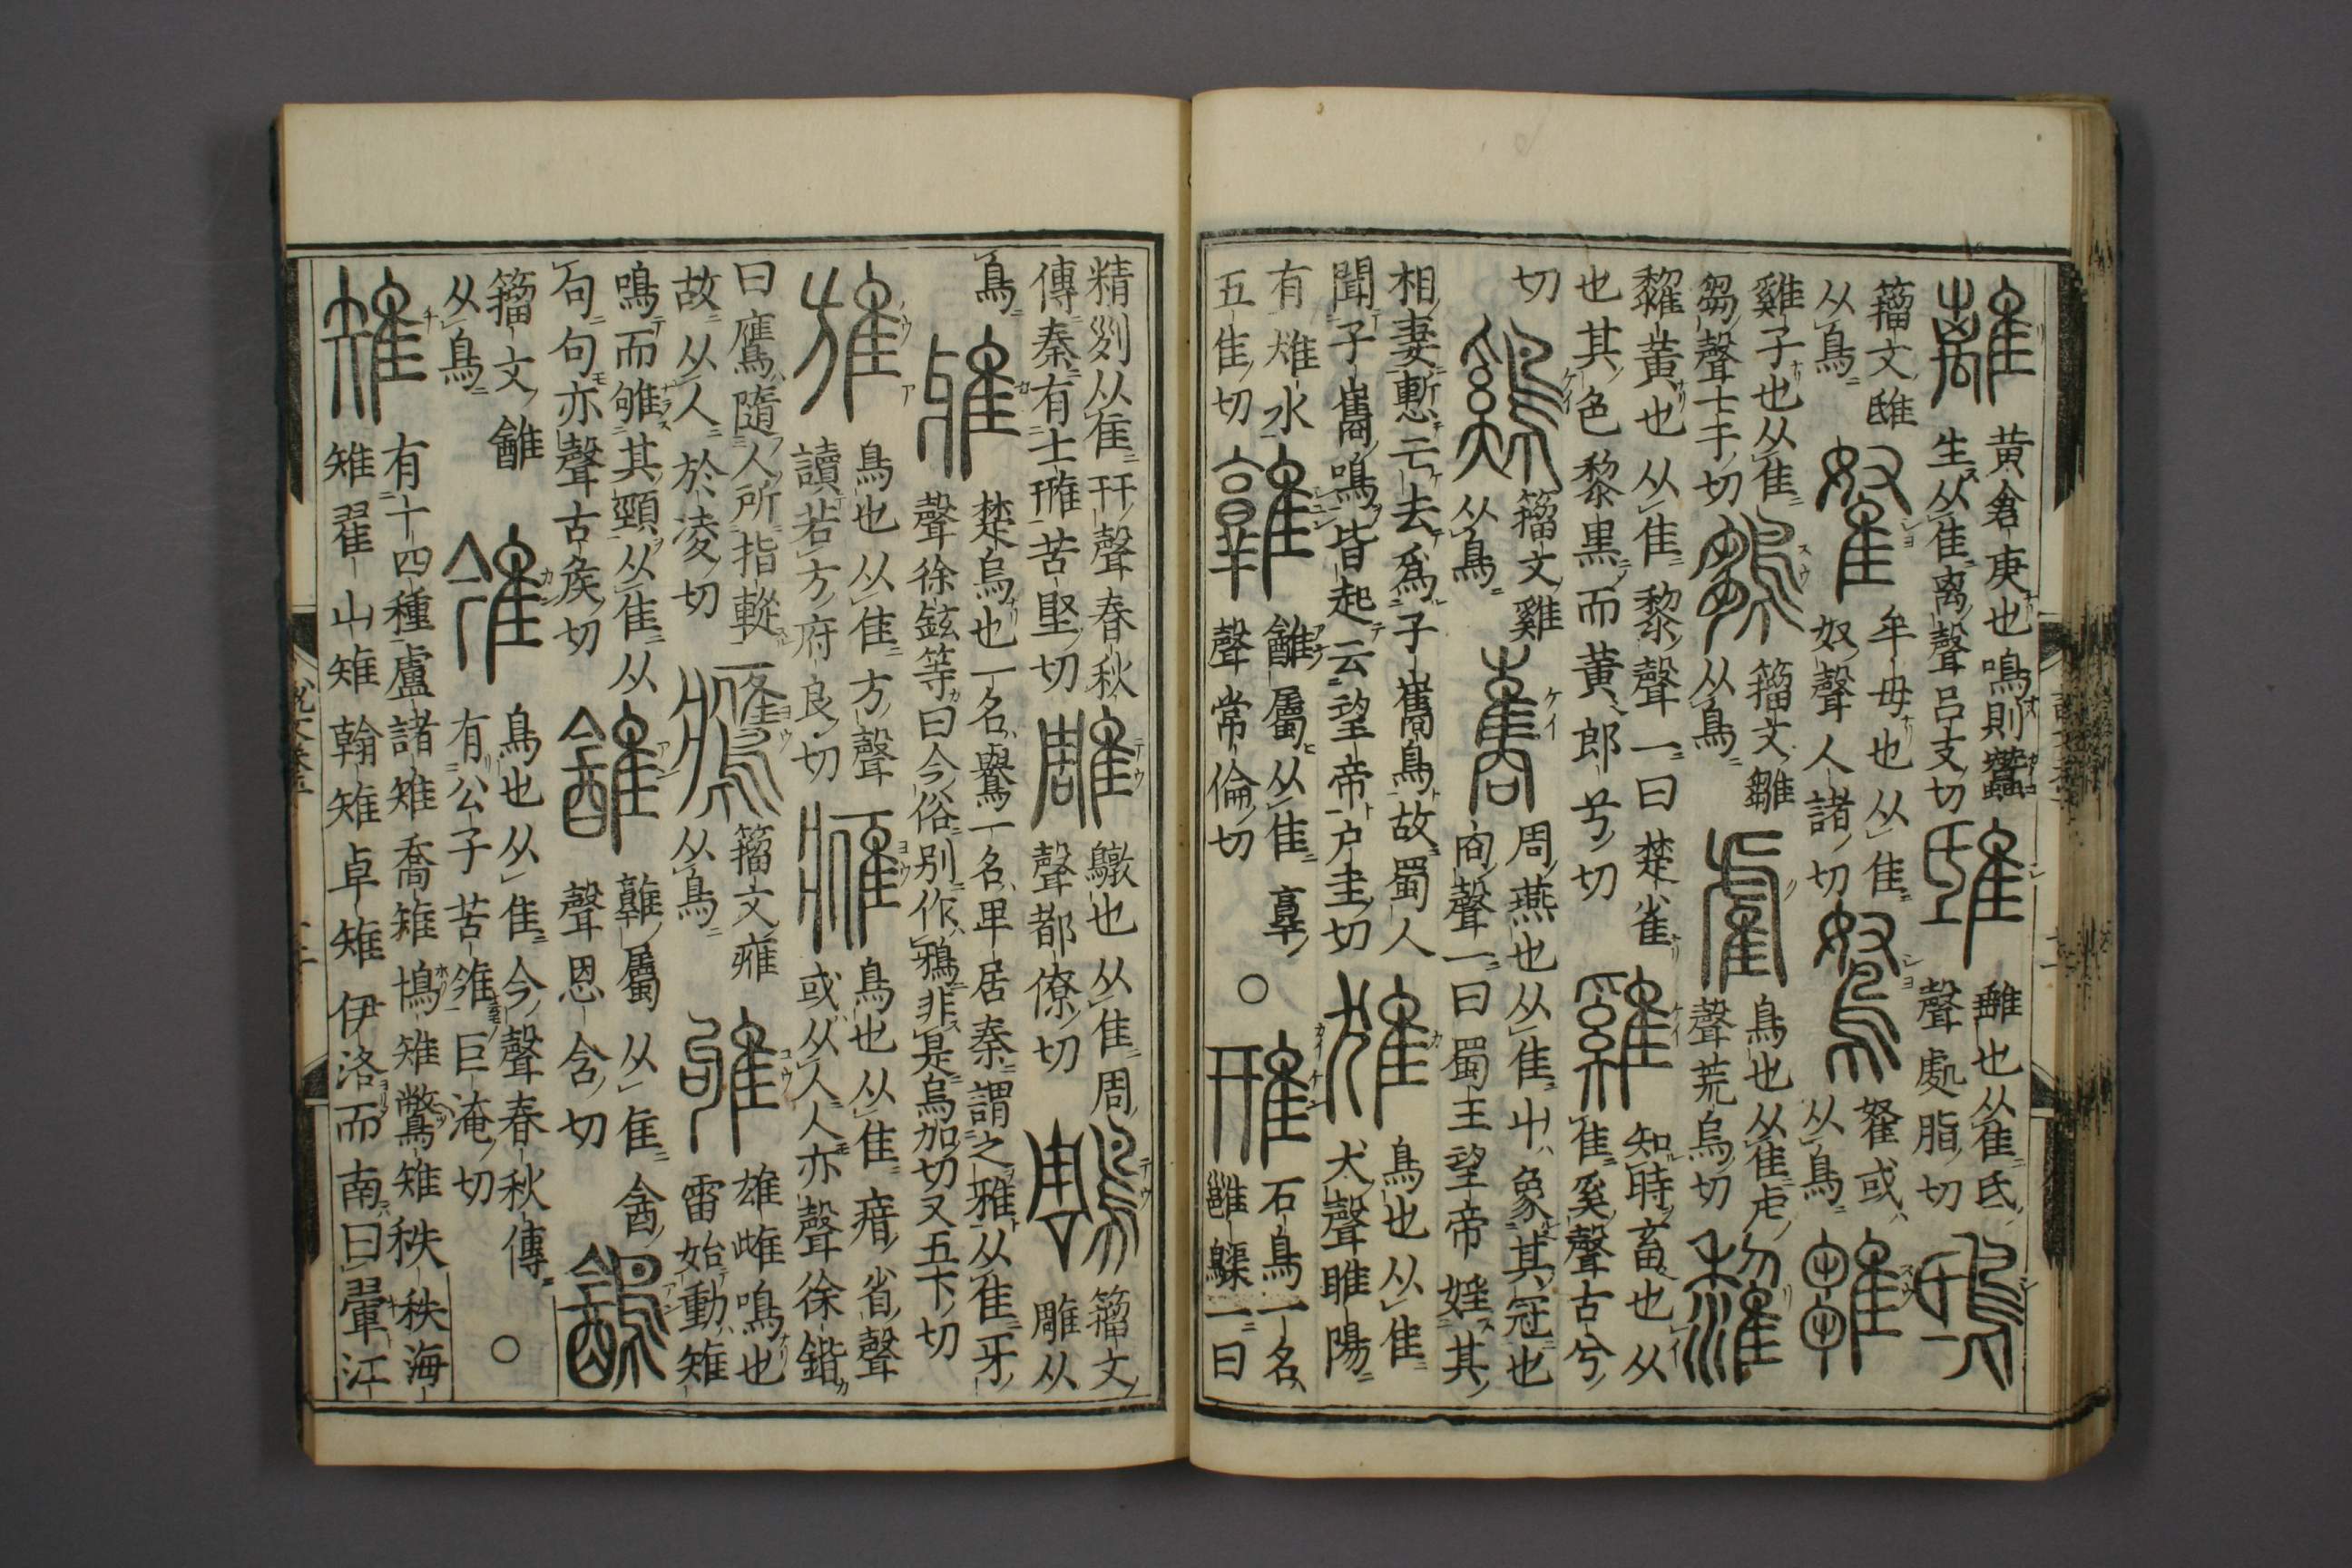 離 黃倉庚也鳴則蠶
生从隹离聲呂支切 䧳 雖也从隹氐
聲處脂切 鴟
籀文䧳
从鳥 䎟 牟母也从隹
奴聲人諸切 鴽 䎟或
从鳥 雛
雞子也从隹
芻聲士于切 鶵 籀文雛
从鳥 雐 鳥也从隹虍
聲荒烏切
雞黃也从隹黎聲一曰楚雀
也其色黎黑而黃郎兮切 雞 知時畜也从
隹奚聲古兮
切 鷄 籀文雞
从鳥 巂 周燕也从隹屮象其冠也
㕯聲一曰蜀王望帝婬其
相妻慙亡去爲子巂鳥故蜀人
聞子巂鳴皆起云望帝戶圭切 鳥也从隹
犬聲睢陽
有雄水
五隹切 屬从隹𦎫
聲常倫切 ○ 雃 石鳥一名
雝䳶一曰
精列从隹幵聲春秋
傳秦有士雃苦堅切 雕 鷻也从隹周
聲都僚切 鵰 籀文
雕从
鳥 雅 楚烏也一名鸒一名卑居秦謂之雅从隹牙
聲徐鉉等曰今俗別作鴉非是烏加切又五下切
鳥也从隹方聲
讀若方府良切 䧹 鳥也从隹瘖省聲
或从人人亦聲徐鍇
曰鷹隨人所指䡮
故从人於凌切 鷹 籀文䧹
从鳥 雊 雄雌鳴也
雷始動雉
鳴而雊其頸从隹从
句句亦聲古矦切 雗屬从隹酓
聲恩含切
籀文
从鳥 雂 鳥也从隹今聲春秋傳
有公子苦雂巨淹切 ○
雉 有十四種盧諸雉喬雉鳩雉鷩雉秩秩海
雉翟山雉翰雉卓雉伊洛而南曰翬江